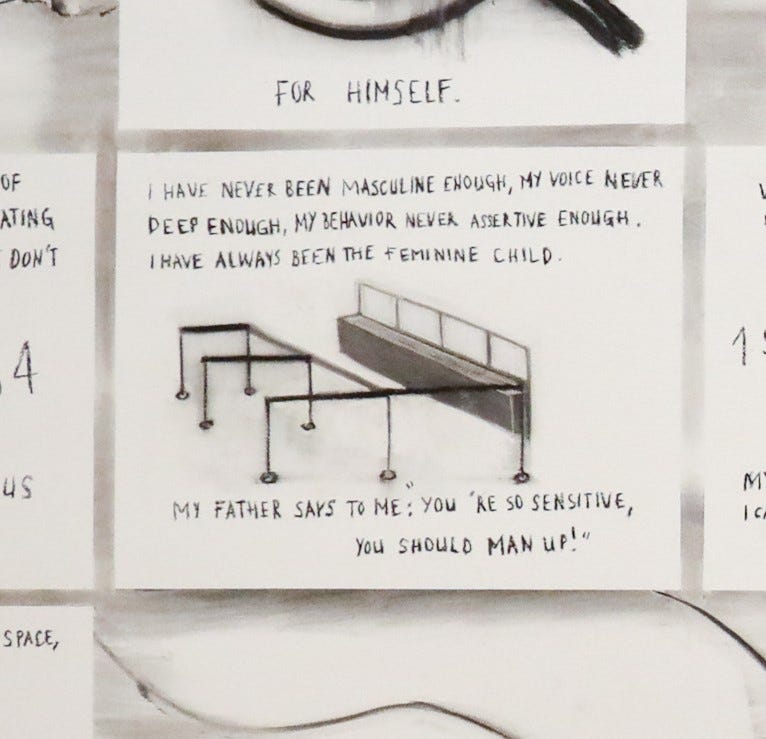 FOR HIMSELF.
OF
ATING
DON'T
4
US
I HAVE NEVER BEEN MASCULINE ENOUGH, MY VOICE NEVER
DEEP ENOUGH, MY BEHAVIOR NEVER ASSERTIVE ENOUGH.
I HAVE ALWAYS BEEN THE FEMININE CHILD.
MY FATHER SAYS TO ME: "YOU 'RE SO SENSITIVE,
YOU SHOULD MAN UP!"
1
MY
SPACE,